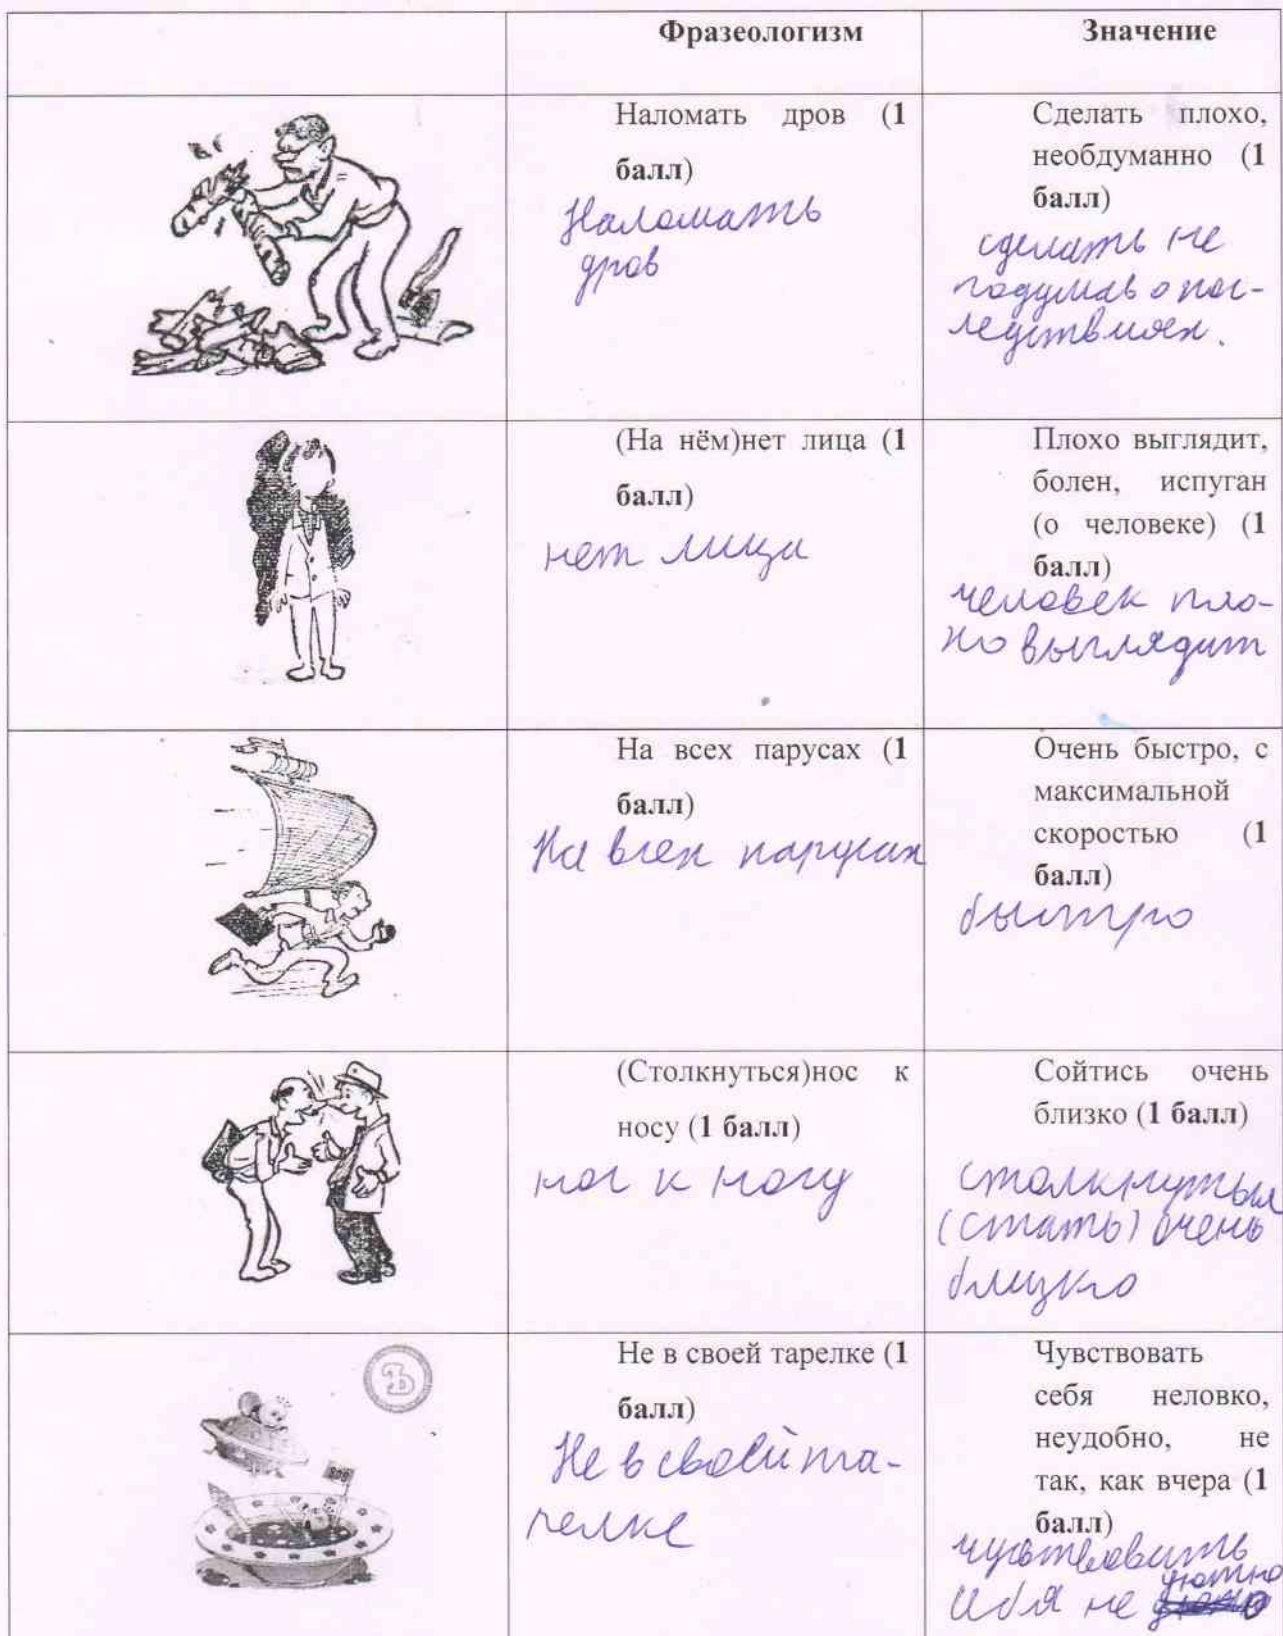 Фразеологизм
Значение
Наломать дров (1
балл)
Наломать
дров
Сделать плохо,
необдуманно (1
балл)
сделать не
подумав о пос-
ледствиях.
(На нём)нет лица (1
балл)
нет лица
Плохо выглядит,
болен, испуган
(о человеке) (1
балл)
человек пло-
хо выглядит
На всех парусах (1
балл)
На всех парусах
Очень быстро, с
максимальной
скоростью (1
балл)
быстро
(Столкнуться)нос к
носу (1 балл)
нос к носу
Сойтись очень
близко (1 балл)
столкнуться
(стать) очень
близко
Ъ
SOS
Не в своей тарелке (1
балл)
Не в своей та-
релке
Чувствовать
себя неловко,
неудобно, не
так, как вчера (1
балл)
чувствовать
себя не уютно